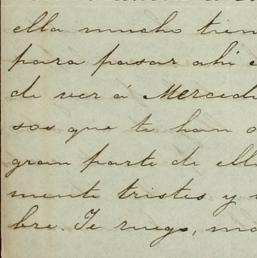 ella mucho tiem
para pasar ahi e
de ver á Merced
sos que te han o
gran parte de ell
mente tristes y
bre. Te ruego, ma